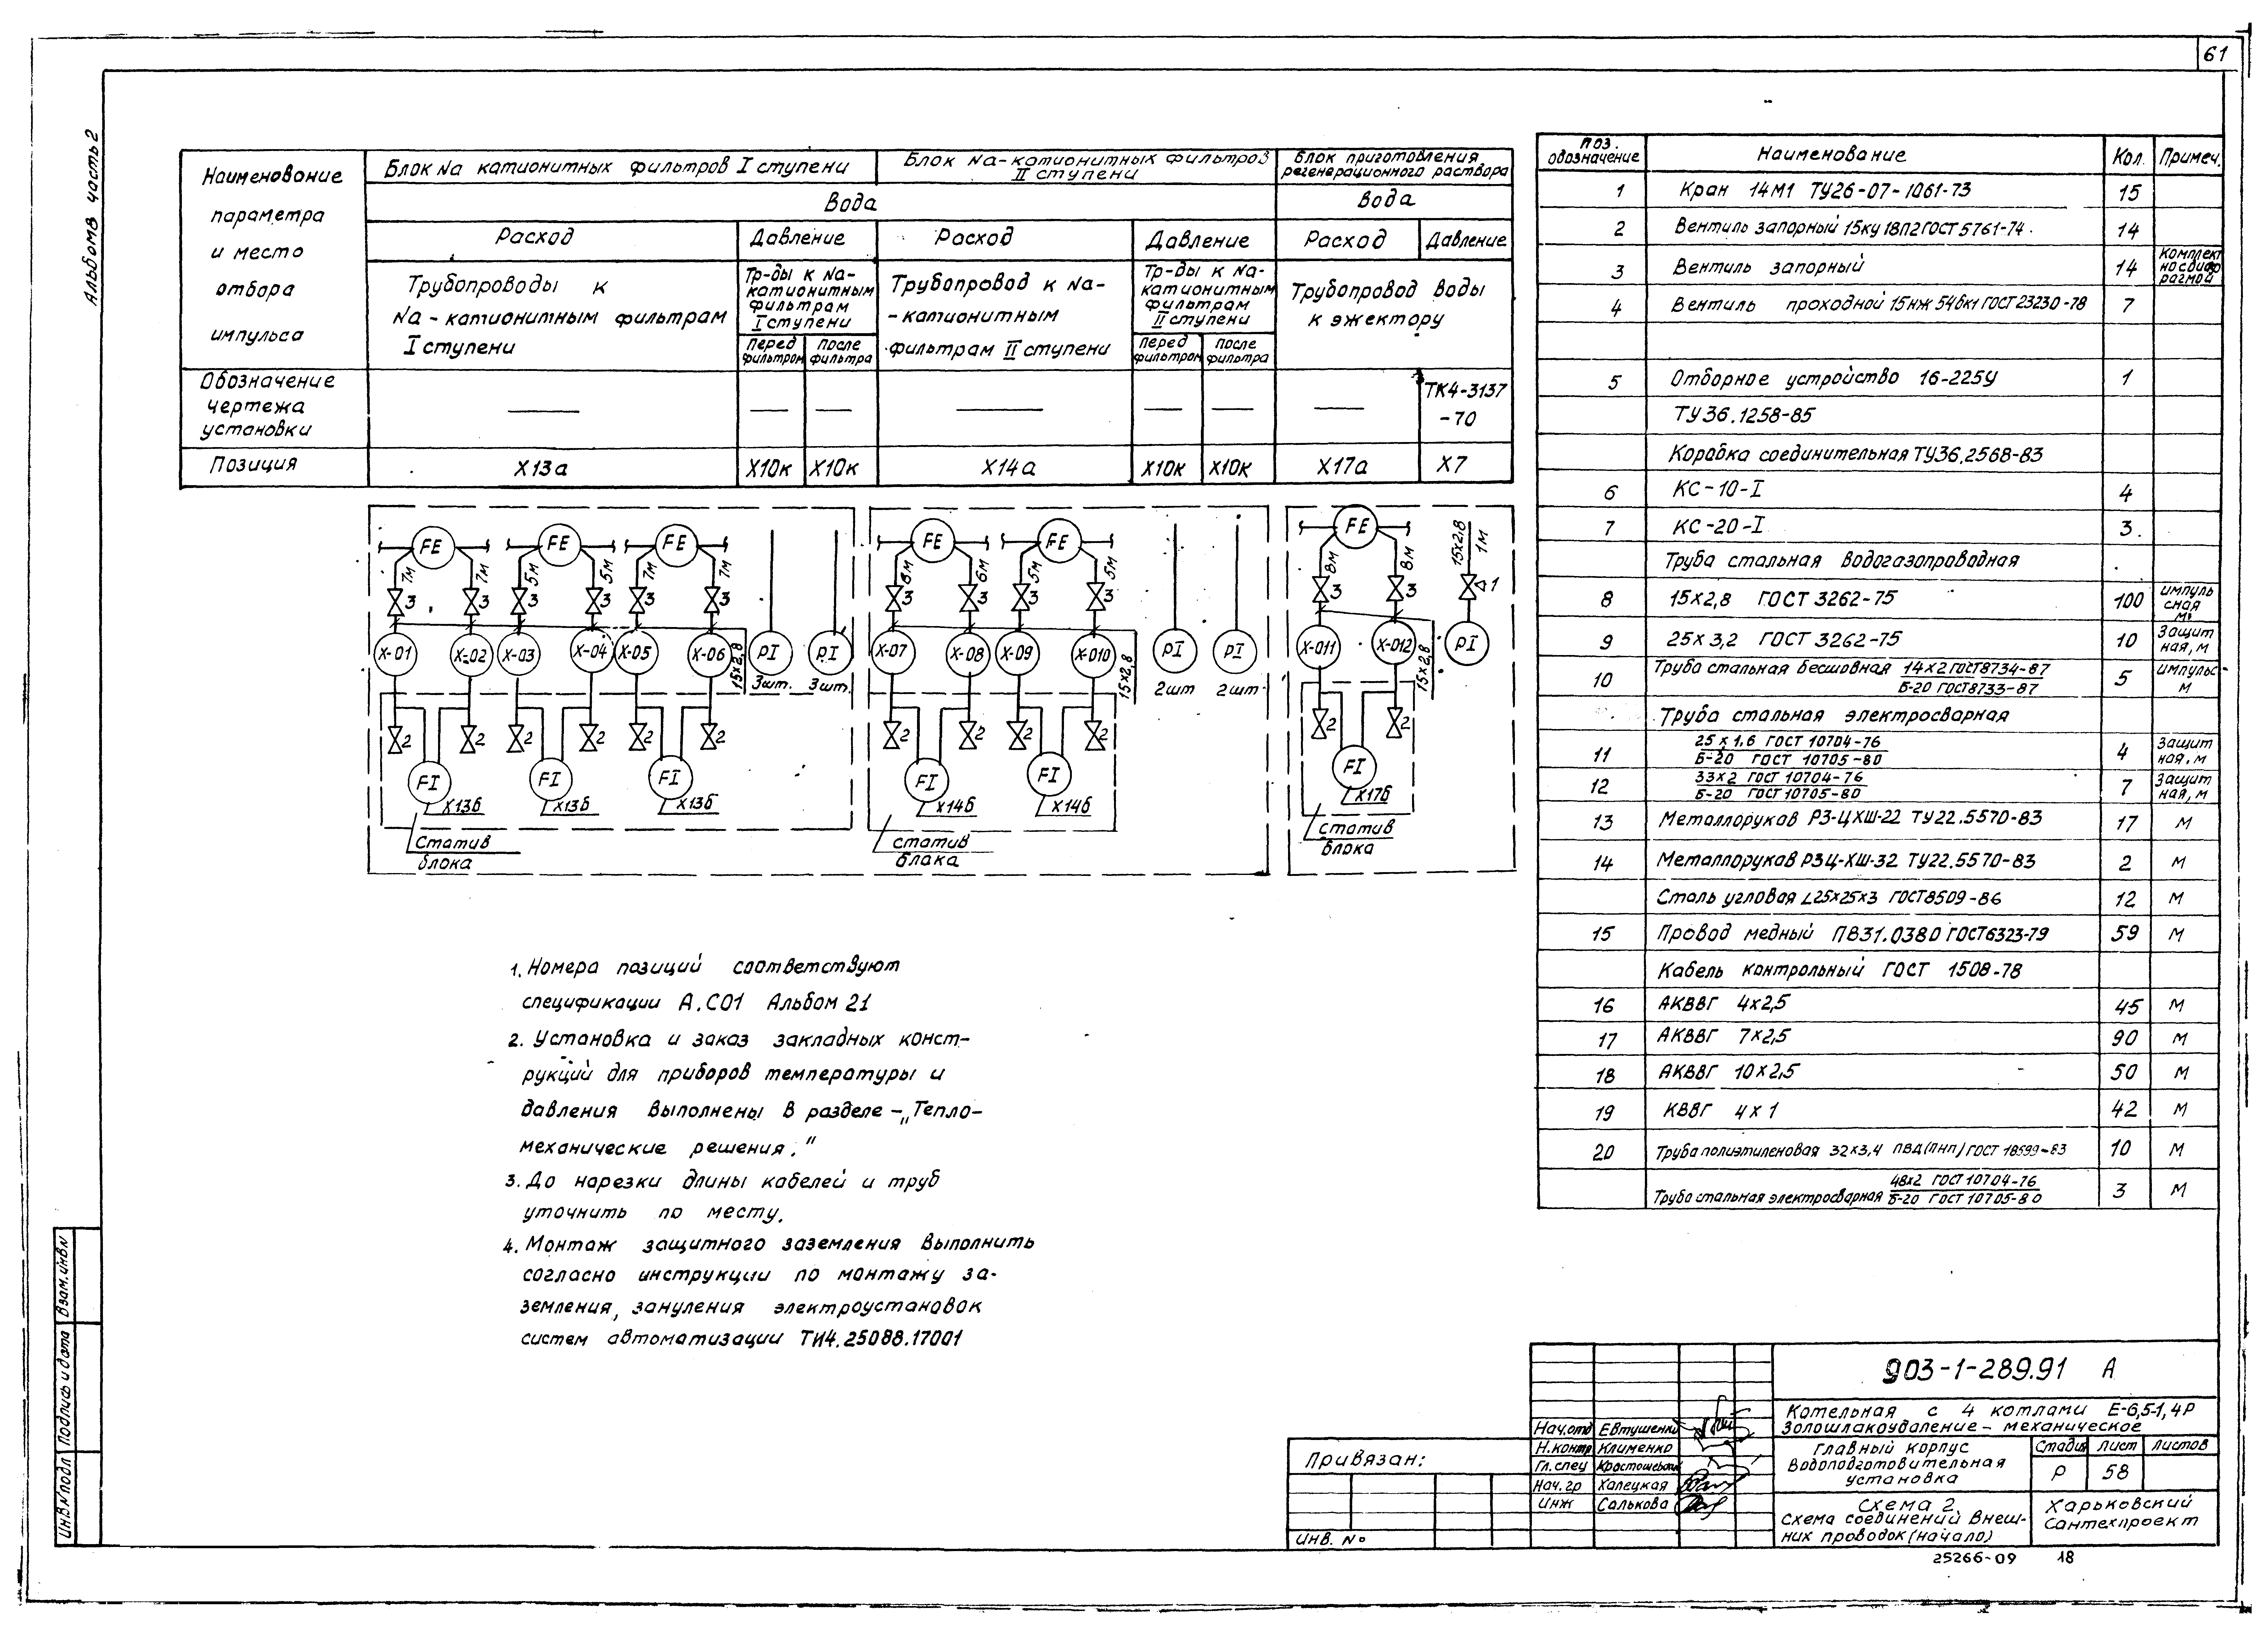 61
Альбом 8 часть 2
Наименование
параметра
и место
отбора
импульса
Блок Na катионитных фильтров I ступени
Блок Na-катионитных фильтров
II ступени
Блок приготовления
регенерационного раствора
Вода
Вода
Расход
Давление
Расход
Давление
Расход
Давление
Трубопроводы к
Na-катионитным фильтрам
I ступени
Тр-ды к Na-
катионитным
фильтрам
I ступени
Перед
фильтром
после
фильтра
Трубопровод к Na-
-катионитным
фильтрам II ступени
Тр-ды к Na-
катионитным
фильтрам
II ступени
Перед
фильтром
после
фильтра
Трубопровод воды
к эжектору
Обозначение
чертежа
установки
ТК4-3137
-70
Позиция
Х13а
Х10к
Х10к
Х14а
Х10к
Х10к
Х17а
Х7
FE FE FE FE FE FE
7м 7м 5м 5м 7м 7м 6м 6м 5м 5м 8м 8м 15х2,8 1м
3 3 3 3 3 3 3 3 3 3 3 3 1
Х-01 Х-02 Х-03 Х-04 Х-05 Х-06 15х2,8 PI PI
3шт. 3шт.
Х-07 Х-08 Х-09 Х-010 15х2,8 PI PI
2шт 2шт.
Х-011 Х-012 15х2,8 PI
2 2 2 2 2 2 2 2 2 2 2 2
FI FI FI FI FI FI
Х13б Х13б Х13б Х14б Х14б Х17б
Статив
блока
Статив
блака
Статив
блока
1. Номера позиций соответствуют
спецификации А.СО1 Альбом 21
2. Установка и заказ закладных конст-
рукций для приборов температуры и
давления выполнены в разделе -„Тепло-
механические решения."
3. До нарезки длины кабелей и труб
уточнить по месту.
4. Монтаж защитного заземления выполнить
согласно инструкции по монтажу за-
земления, зануления электроустановок
систем автоматизации ТИ4.25088.17001
поз. обозначение Наименование Кол. Примеч.
1 Кран 14М1 ТУ26-07-1061-73 15
2 Вентиль запорный 15ку 18п2 ГОСТ 5761-74. 14
3 Вентиль запорный 14 Комплект но с диаф рагмой
4 Вентиль проходной 15нж 54бк1 ГОСТ 23230-78 7
5 Отборное устройство 16-225У 1
ТУ36.1258-85
Коробка соединительная ТУ36.2568-83
6 КС-10-I 4
7 КС-20-I 3.
Труба стальная водогазопроводная
8 15х2,8 ГОСТ 3262-75 100 импуль сная м
9 25х3,2 ГОСТ 3262-75 10 Защит ная, м
10 Труба стальная бесшовная 14х2 ГОСТ8734-87 5 импульс м
Б-20 ГОСТ8733-87
Труба стальная электросварная
11 25х1,6 ГОСТ 10704-76 4 Защит ная, м
Б-20 ГОСТ 10705-80
12 33х2 ГОСТ 10704-76 7 Защит ная, м
Б-20 ГОСТ 10705-80
13 Металлорукав РЗ-ЦХШ-22 ТУ22.5570-83 17 м
14 Металлорукав РЗЦ-ХШ-32 ТУ22.5570-83 2 м
Сталь угловая ∠25х25х3 ГОСТ8509-86 12 м
15 Провод медный ПВ31.0380 ГОСТ6323-79 59 м
Кабель контрольный ГОСТ 1508-78
16 АКВВГ 4х2,5 45 м
17 АКВВГ 7х2,5 90 м
18 АКВВГ 10х2,5 50 м
19 КВВГ 4х1 42 м
20 Труба полиэтиленовая 32х3,4 ПВД(ПНП) ГОСТ 18599-83 10 м
Труба стальная электросварная 48х2 ГОСТ 10704-76 3 м
Б-20 ГОСТ 10705-80
903-1-289.91 А
Котельная с 4 котлами Е-6,5-1,4Р
Золошлакоудаление - механическое
Нач.отд Евтушенко
Н.контр Клименко
Гл.спец
Нач.гр Халецкая
Инж Салькова
Главный корпус
Водоподготовительная
установка
Стадия Лист Листов
Р 58
Схема 2.
Схема соединений внеш-
них проводок (начало)
Харьковский
Сантехпроект
Привязан:
Инв. №
25266-09 18
Взам.инв.N
Подпись и дата
Инв.N подл